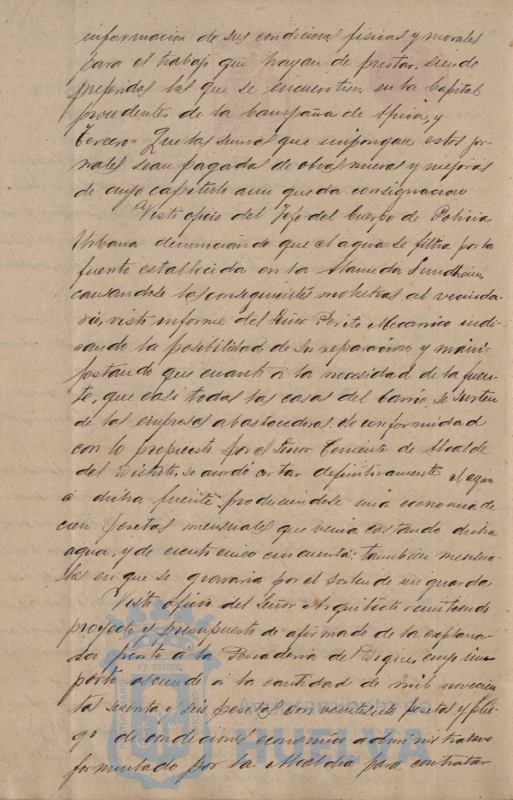 informacion de sus condiciones fisicas y morales
para el trabajo que hayan de prestar, siendo
preferidos los que se encuentren en la Capital
procedentes de la campaña de Africa, y
Tercero= Que las sumas que importen estos jor
nales sean pagadas de obras nuevas y mejoras
de cuyo capitulo aun queda consignacion
Visto oficio del Jefe del Cuerpo de Policia
Urbana denunciando que el agua se filtra por la
fuente establecida en la Alameda Sundheim
causandose las consiguientes molestias al vecinda
rio, visto informe del Señor Perito Mecanico indi
cando la posibilidad de su reparacion y mani
festando que cuanto á la necesidad de la fuen
te, que casi todas las casas del barrio, se surten
de las empresas abastecedoras, de conformidad
con lo propuesto por el Señor Teniente de Alcalde
del distrito, se acordó cortar definitivamente el agua
á dicha fuente produciendose una economia de
cien pesetas mensuales que venia costando dicha
agua, y de ciento cinco cincuenta: tambien mensua
les en que se gravaria por el sosten de un guarda
Visto oficio del Señor Arquitecto remitiendo
proyecto y presupuesto de afirmado de la explana
da frente á la Panaderia de cuyo im
porte asciende á la cantidad de mil novecien
tas sesenta y seis pesetas con pesetas y plie
go de condiciones economico administrativo
formulado por la Alcaldia para contratar
Ayuntamiento de
HUELVA